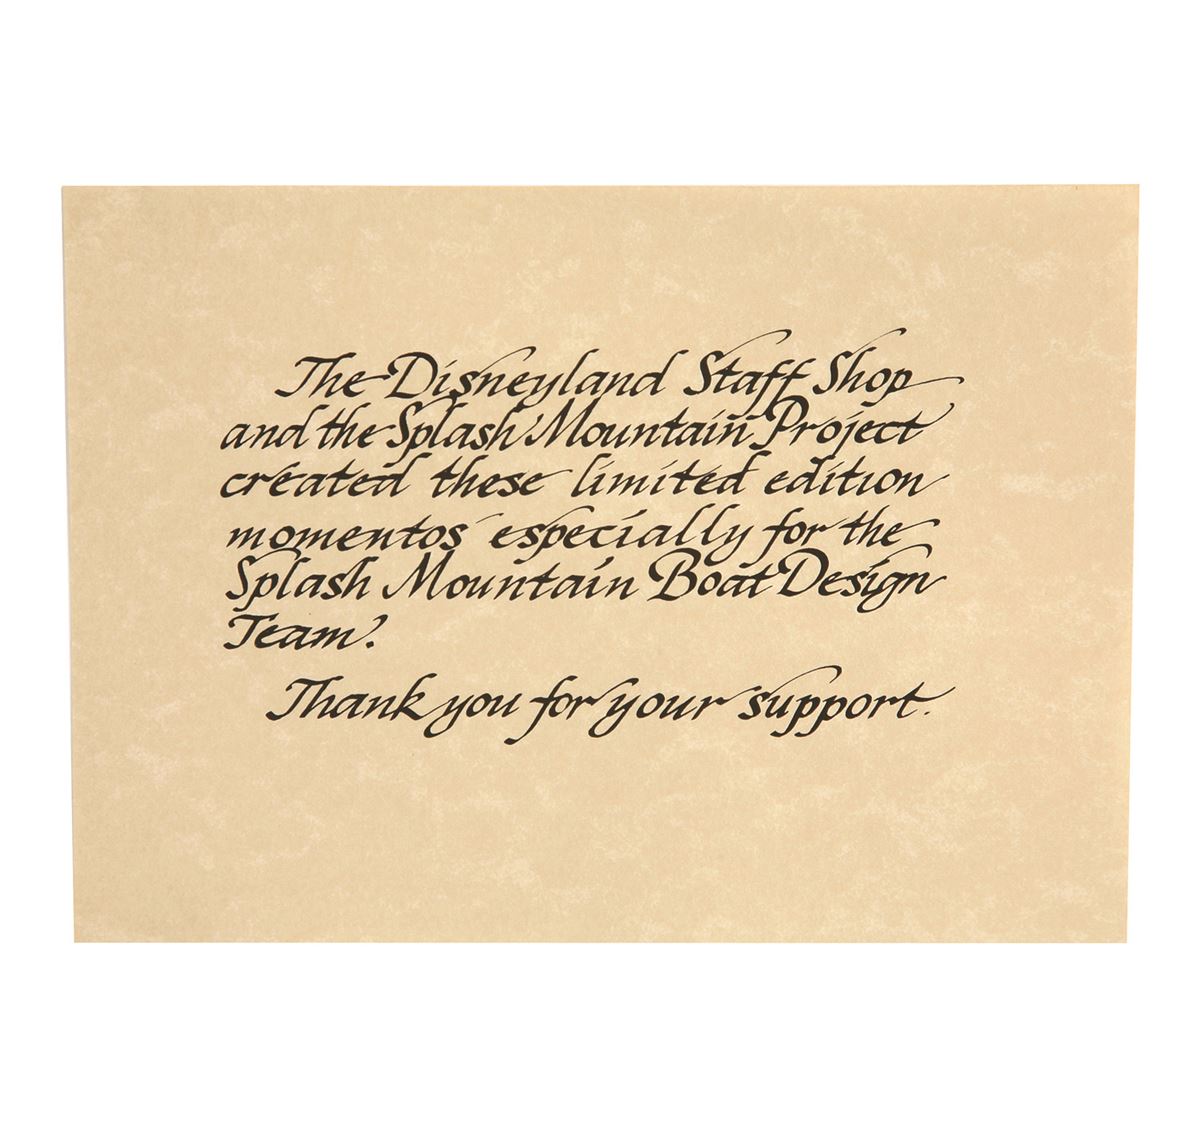 The Disneyland Staff Shop
and the Splash Mountain Project
created these limited edition
momentos especially for the
Splash Mountain Boat Design
Team.
Thank you for your support.